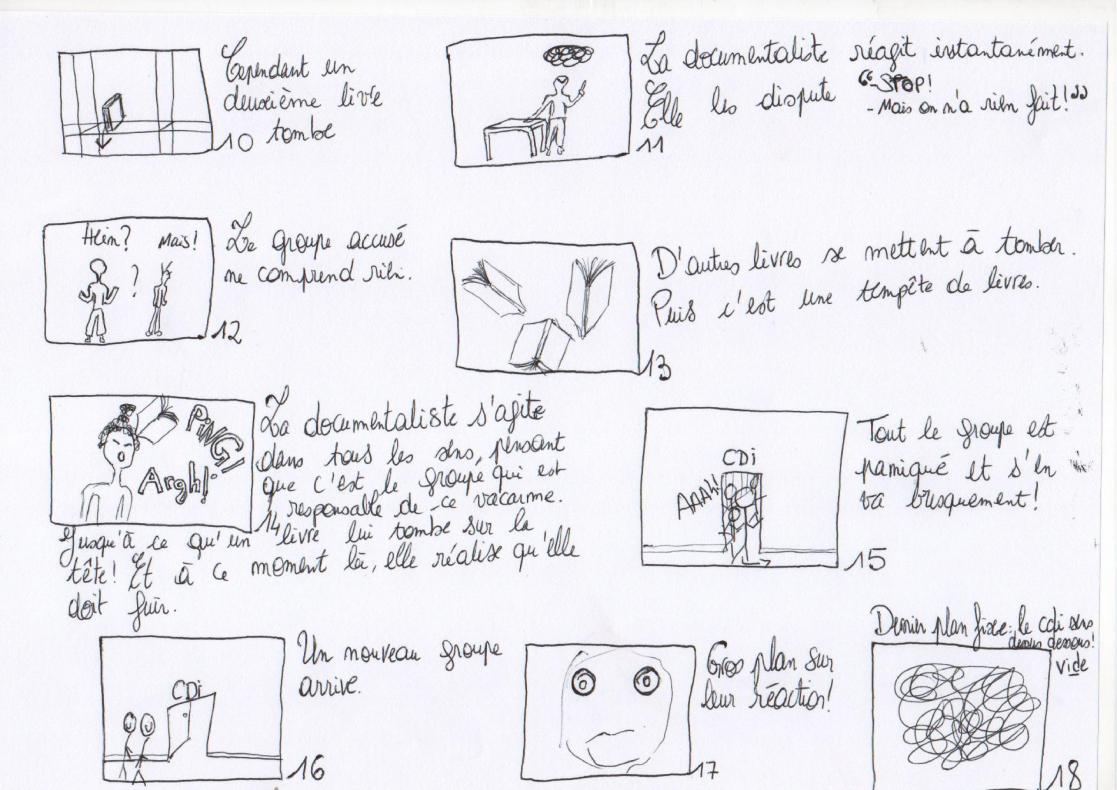 Cependant un
deuxième livre
tombe
10
La documentaliste réagit instantanément.
Elle les dispute
"-STOP!
- Mais on n'a rien fait!"
11
Hein? Mais!
?
Le groupe accusé
ne comprend rien.
12
D'autres livres se mettent à tomber.
Puis c'est une tempête de livres.
13
PiNG!
Argh!
La documentaliste s'agite
dans tous les sens, pensant
que c'est le groupe qui est
responsable de ce vacarme.
14
Jusqu'à ce qu'un livre lui tombe sur la
tête! Et à ce moment là, elle réalise qu'elle
doit fuir.
CDi
AAAH
Tout le groupe est
paniqué et s'en
va brusquement!
15
CDi
Un nouveau groupe
arrive.
16
Gros plan sur
leur réaction!
17
Dernier plan fixe: le cdi sens
dessus dessous!
vide
18